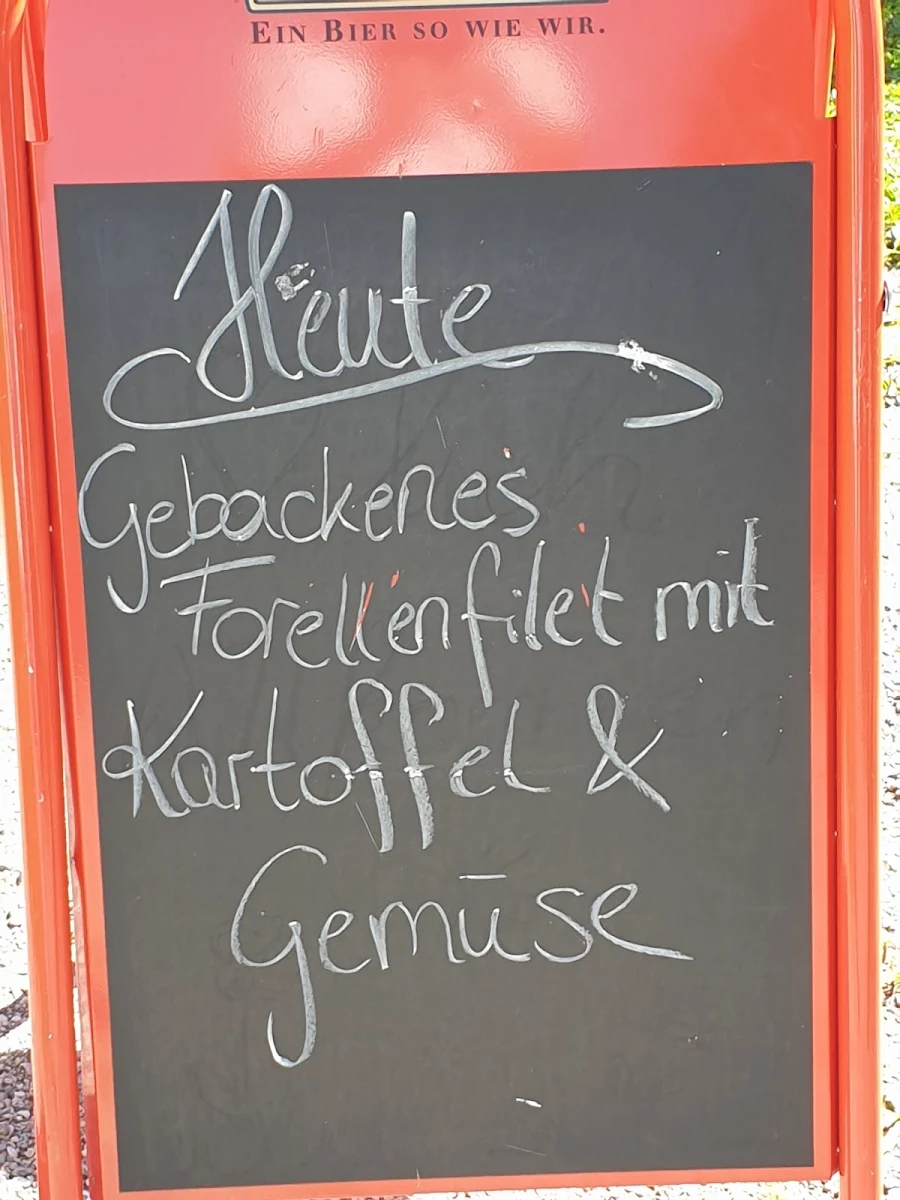 EIN BIER SO WIE WIR.
Heute
Gebackenes
Forellenfilet mit
Kartoffel &
Gemüse